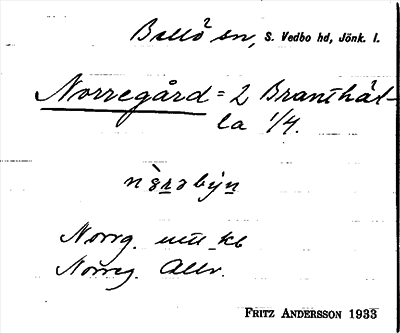 Bellö sn, S. Vedbo hd, Jönk. l.
Norregård = 2 Branthåt-
la 1/4.
Norrg.
Norrg. Allv.
FRITZ ANDERSSON 1933